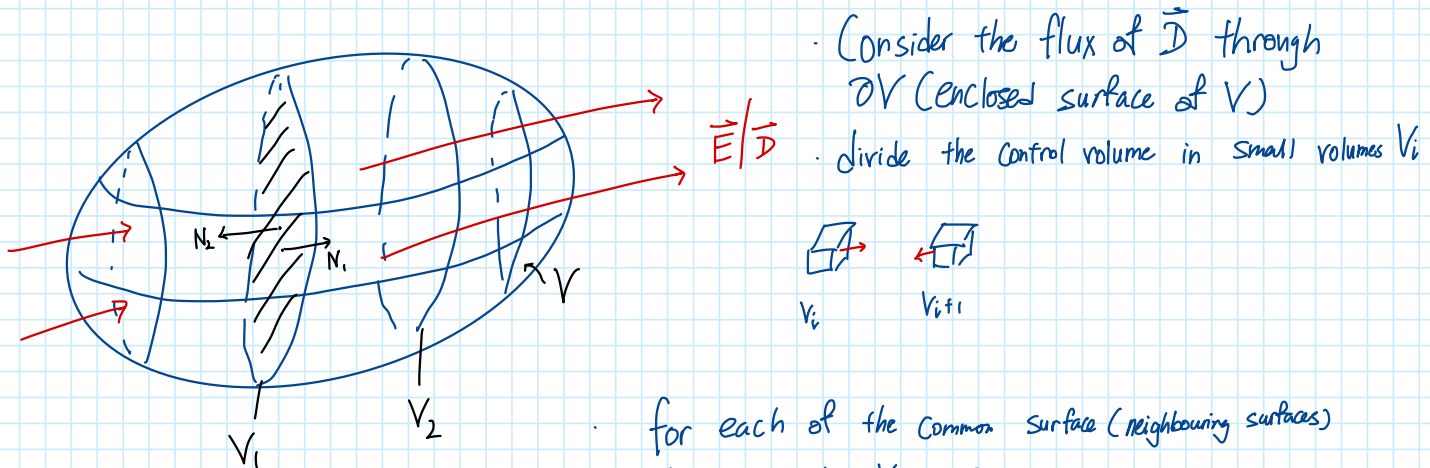 · Consider the flux of D⃗ through
∂V (enclosed surface of V)
· divide the control volume in small volumes Vᵢ
E⃗/D⃗
N₂
N₁
V
Vᵢ
Vᵢ₊₁
V₁
V₂
· for each of the common surface (neighbouring surfaces)